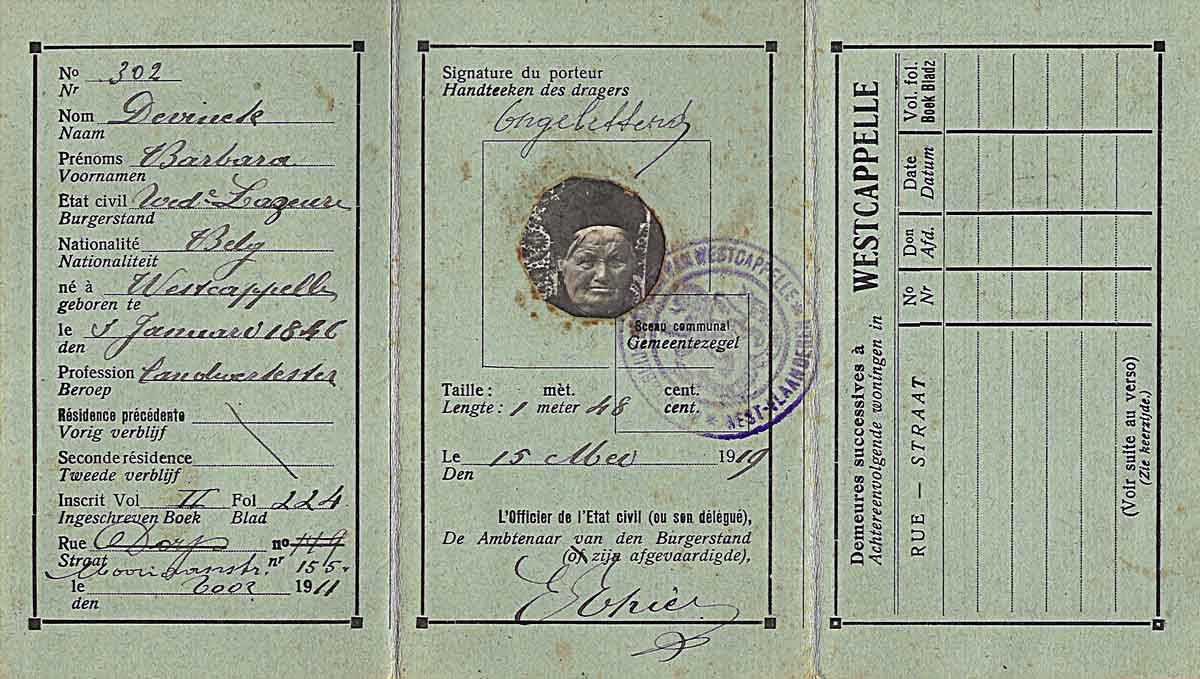 Nº 302
Nr
Nom Devinck
Naam
Prénoms Barbara
Voornamen
Etat civil Wed.e Lageure
Burgerstand
Nationalité Belg
Nationaliteit
né à Westcappelle
geboren te
le Januari 1846
den
Profession Landwerkster
Beroep
Résidence précédente
Vorig verblijf
Seconde résidence
Tweede verblijf
Inscrit Vol II Fol 224
Ingeschreven Boek Blad
Rue Dorp nº 119
Straat nr 155
le 1911
den
Signature du porteur
Handteeken des dragers
Ongeletterd
VAN WESTCAPPELLE
WEST-VLAANDEREN
Sceau communal
Gemeentezegel
Taille : mèt. cent.
Lengte : 1 meter 48 cent.
Le 15 Mei 1919
Den
L'Officier de l'Etat civil (ou son délégué),
De Ambtenaar van den Burgerstand
(of zijn afgevaardigde),
Demeures successives à WESTCAPPELLE
Achtereenvolgende woningen in
RUE — STRAAT
Nº
Nr
Don
Afd.
Date
Datum
Vol. fol.
Boek Bladz
(Voir suite au verso)
(Zie keerzijde.)